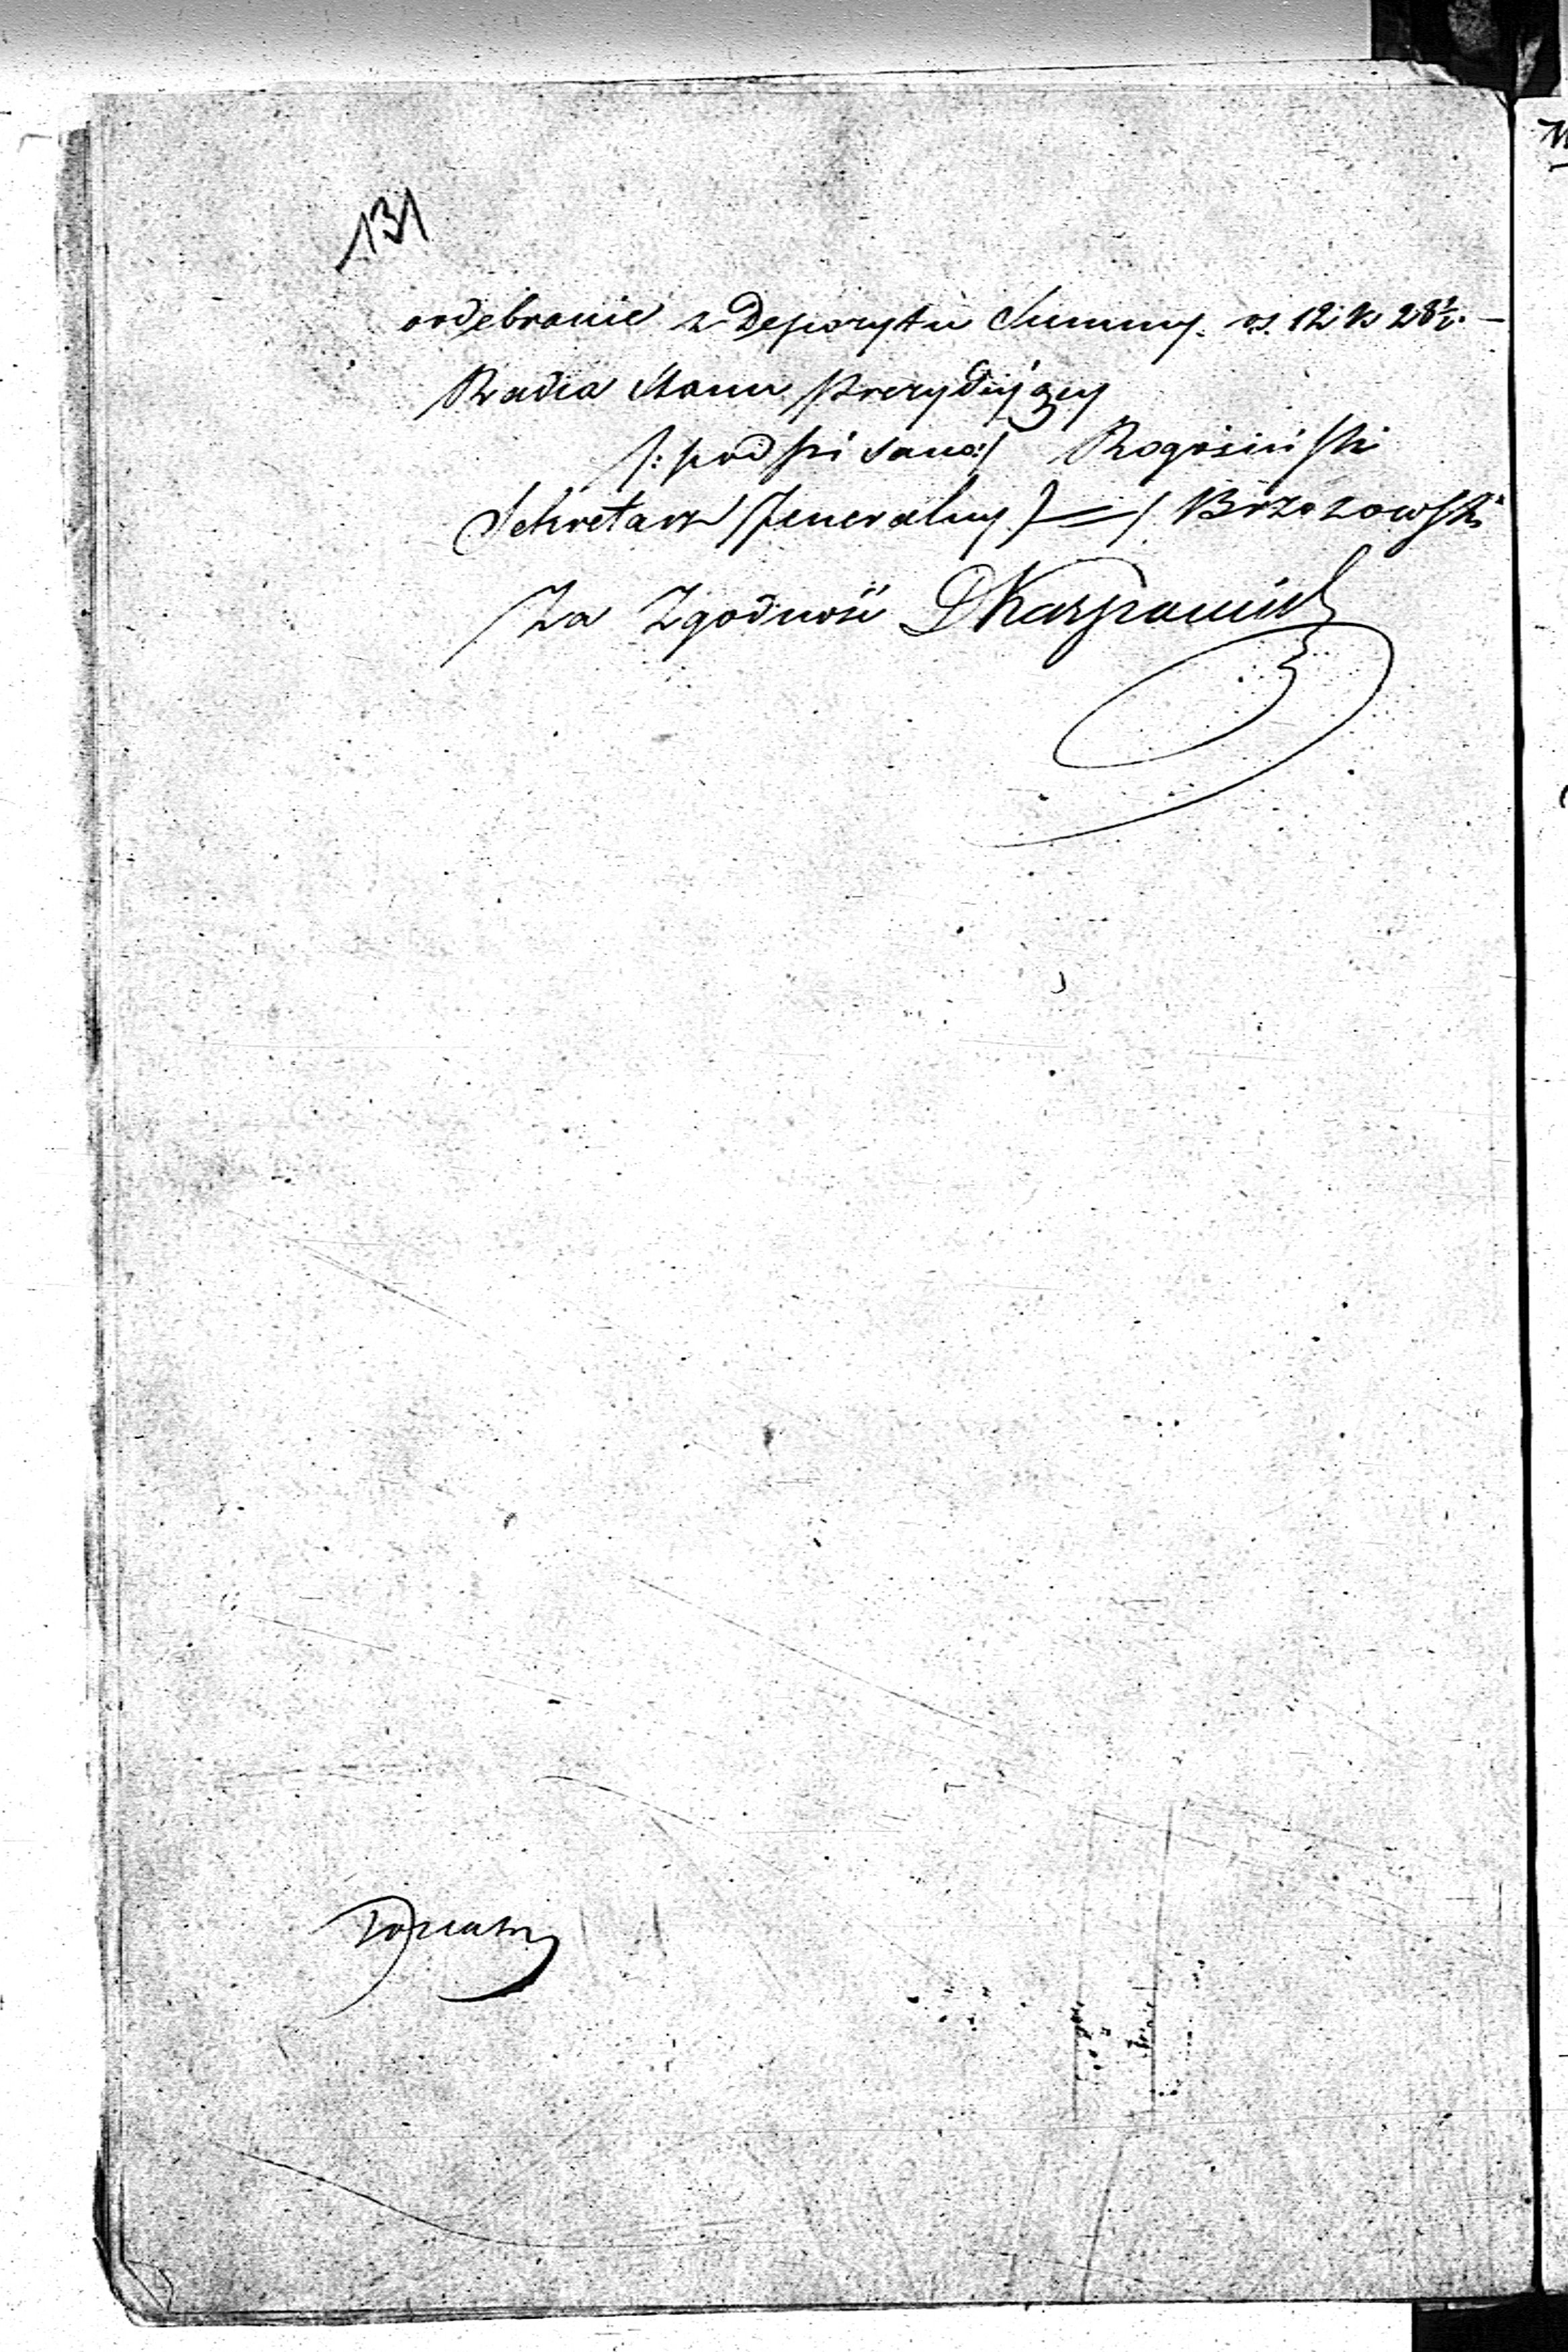 131
oodebranie z Depozytu Summy rs. 12 k 28½.—
Radca Stanu Prezydujący
/:podpisano:/ Rogoziński
Sekretarz Jeneralny /=/ Brzozowski
Za Zgodność